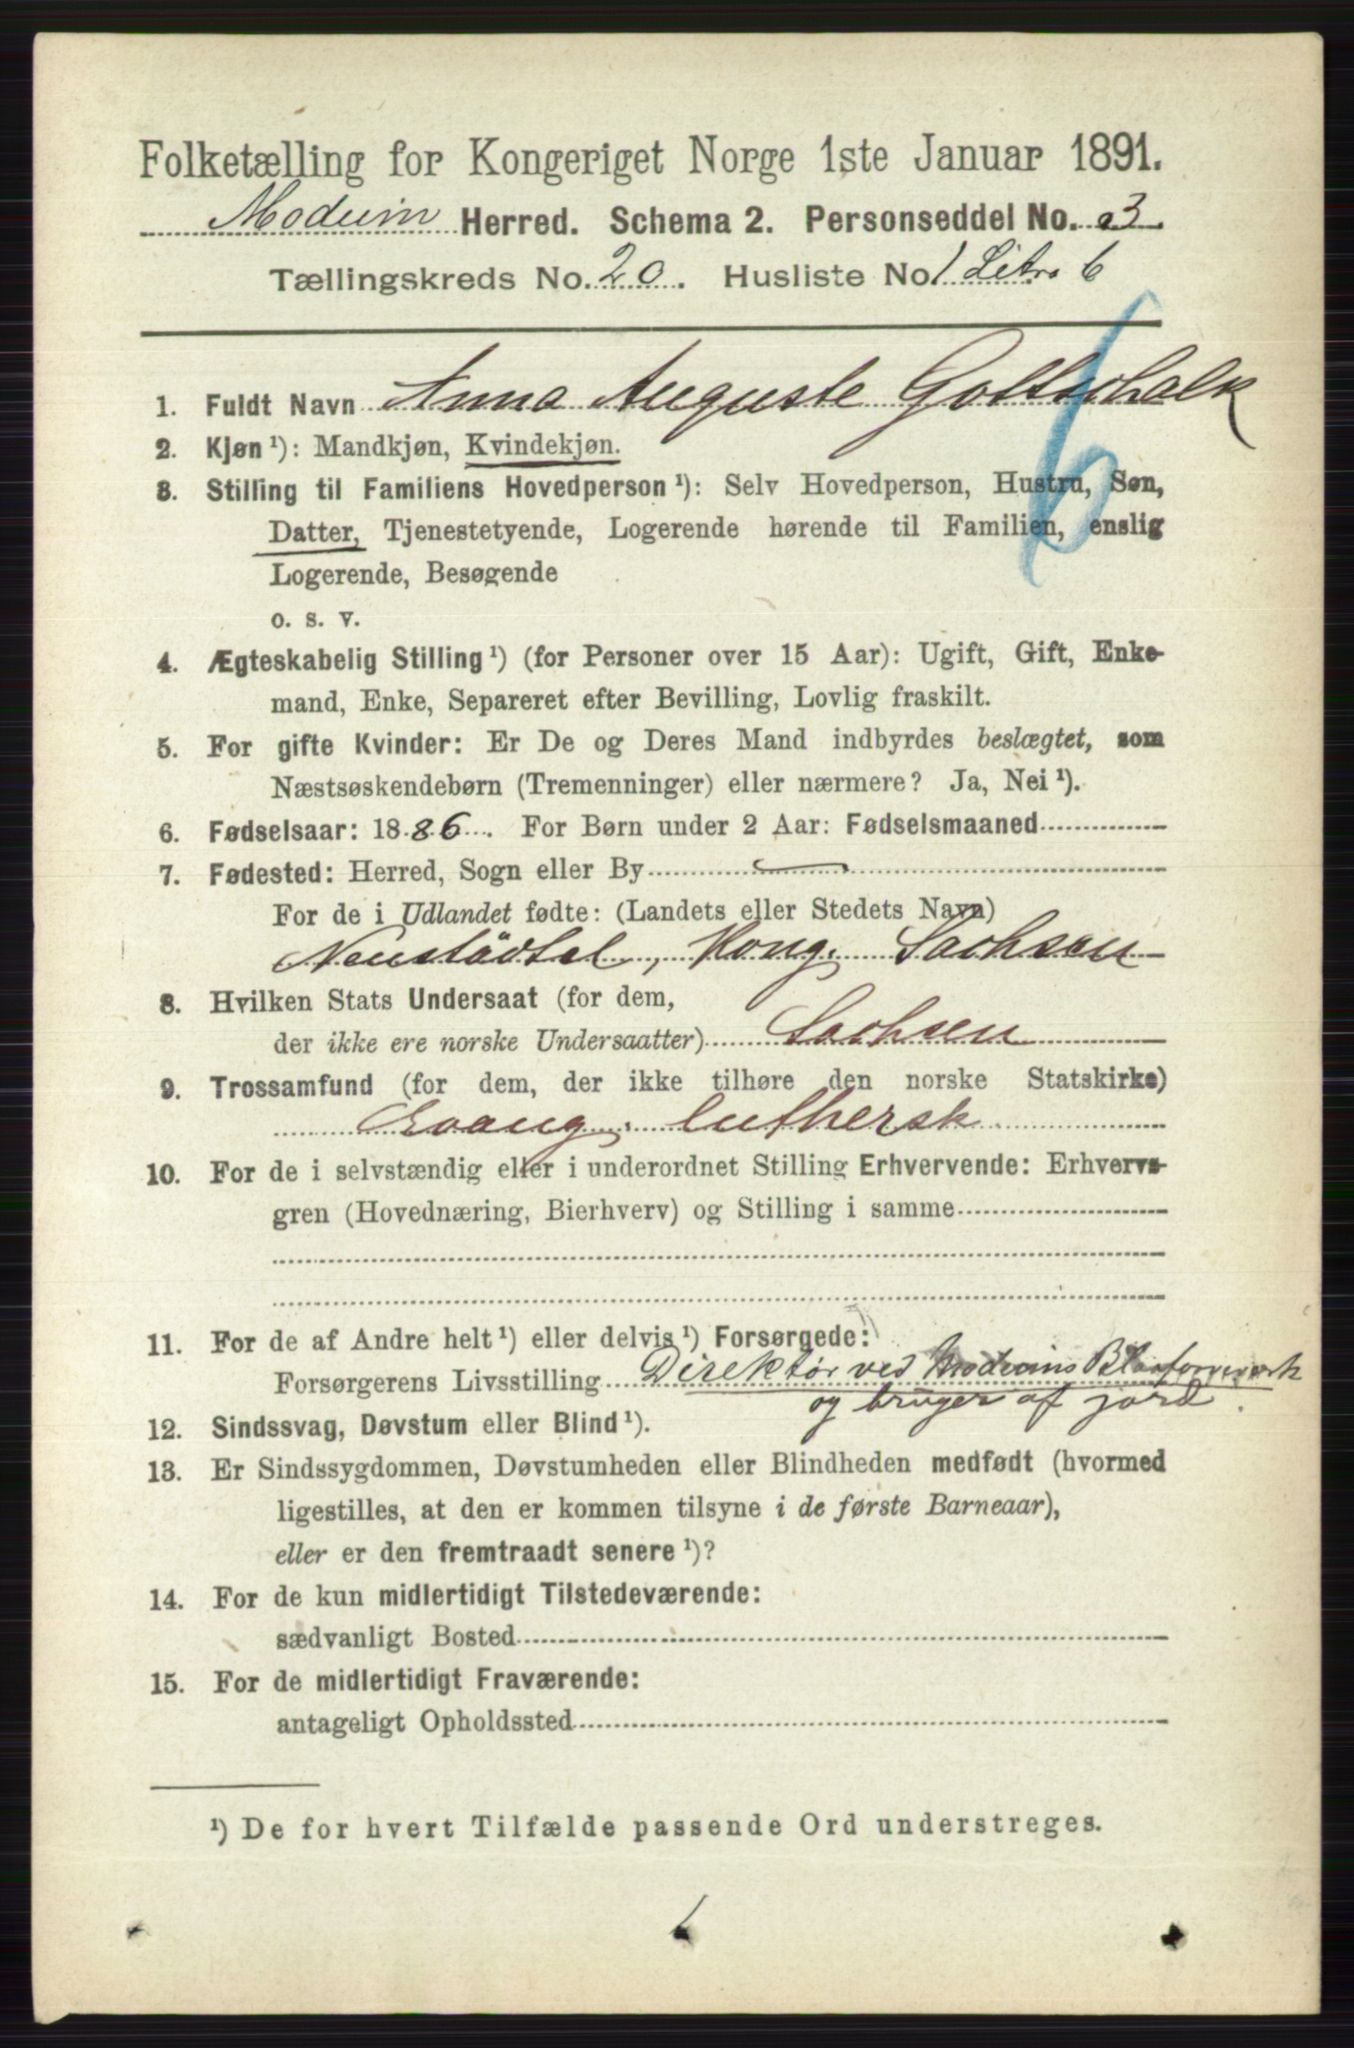 Folketælling for Kongeriget Norge 1ste Januar 1891.
Modum Herred. Schema 2. Personseddel No. 3
Tællingskreds No. 20. Husliste No. 1 Litra b
6
1. Fuldt Navn Anna Auguste Gottschalk
2. Kjøn¹): Mandkjøn, Kvindekjøn.
3. Stilling til Familiens Hovedperson¹): Selv Hovedperson, Hustru, Søn,
Datter, Tjenestetyende, Logerende hørende til Familien, enslig
Logerende, Besøgende
o. s. v.
4. Ægteskabelig Stilling¹) (for Personer over 15 Aar): Ugift, Gift, Enke-
mand, Enke, Separeret efter Bevilling, Lovlig fraskilt.
5. For gifte Kvinder: Er De og Deres Mand indbyrdes beslægtet, som
Næstsøskendebørn (Tremenninger) eller nærmere? Ja, Nei¹).
6. Fødselsaar: 1886. For Børn under 2 Aar: Fødselsmaaned
7. Fødested: Herred, Sogn eller By
For de i Udlandet fødte: (Landets eller Stedets Navn)
Neustädtel, Kong. Sachsen
8. Hvilken Stats Undersaat (for dem,
der ikke ere norske Undersaatter) Sachsen
9. Trossamfund (for dem, der ikke tilhøre den norske Statskirke)
Evang. luthersk
10. For de i selvstændig eller i underordnet Stilling Erhvervende: Erhvervs-
gren (Hovednæring, Bierhverv) og Stilling i samme
11. For de af Andre helt¹) eller delvis¹) Forsørgede:
Forsørgerens Livsstilling Direktør ved Modums Blaafarveværk
og bruger af jord.
12. Sindssvag, Døvstum eller Blind¹).
13. Er Sindssygdommen, Døvstumheden eller Blindheden medfødt (hvormed
ligestilles, at den er kommen tilsyne i de første Barneaar),
eller er den fremtraadt senere¹)?
14. For de kun midlertidigt Tilstedeværende:
sædvanligt Bosted
15. For de midlertidigt Fraværende:
antageligt Opholdssted
¹) De for hvert Tilfælde passende Ord understreges.